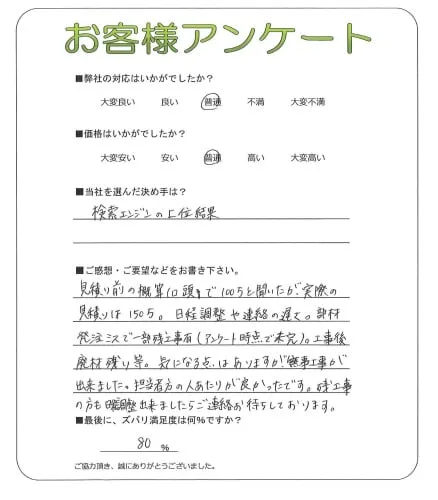 お客様アンケート
■弊社の対応はいかがでしたか？
大変良い 良い 普通 不満 大変不満
■価格はいかがでしたか？
大変安い 安い 普通 高い 大変高い
■当社を選んだ決め手は？
検索エンジンの上位結果
■ご感想・ご要望などをお書き下さい。
見積り前の概算(口頭)で100万と聞いたが、実際の
見積りは150万。日程調整や連絡の遅さ。部材
発注ミスで一部残工事有(アンケート時点で未完)。工事後
廃材残り等。気になる点はありますが無事工事が
出来ました。担当者方の人あたりが良かったです。残工事
の方も調整出来ましたらご連絡お待ちしております。
■最後に、ズバリ満足度は何%ですか？
80 %
ご協力頂き、誠にありがとうございました。